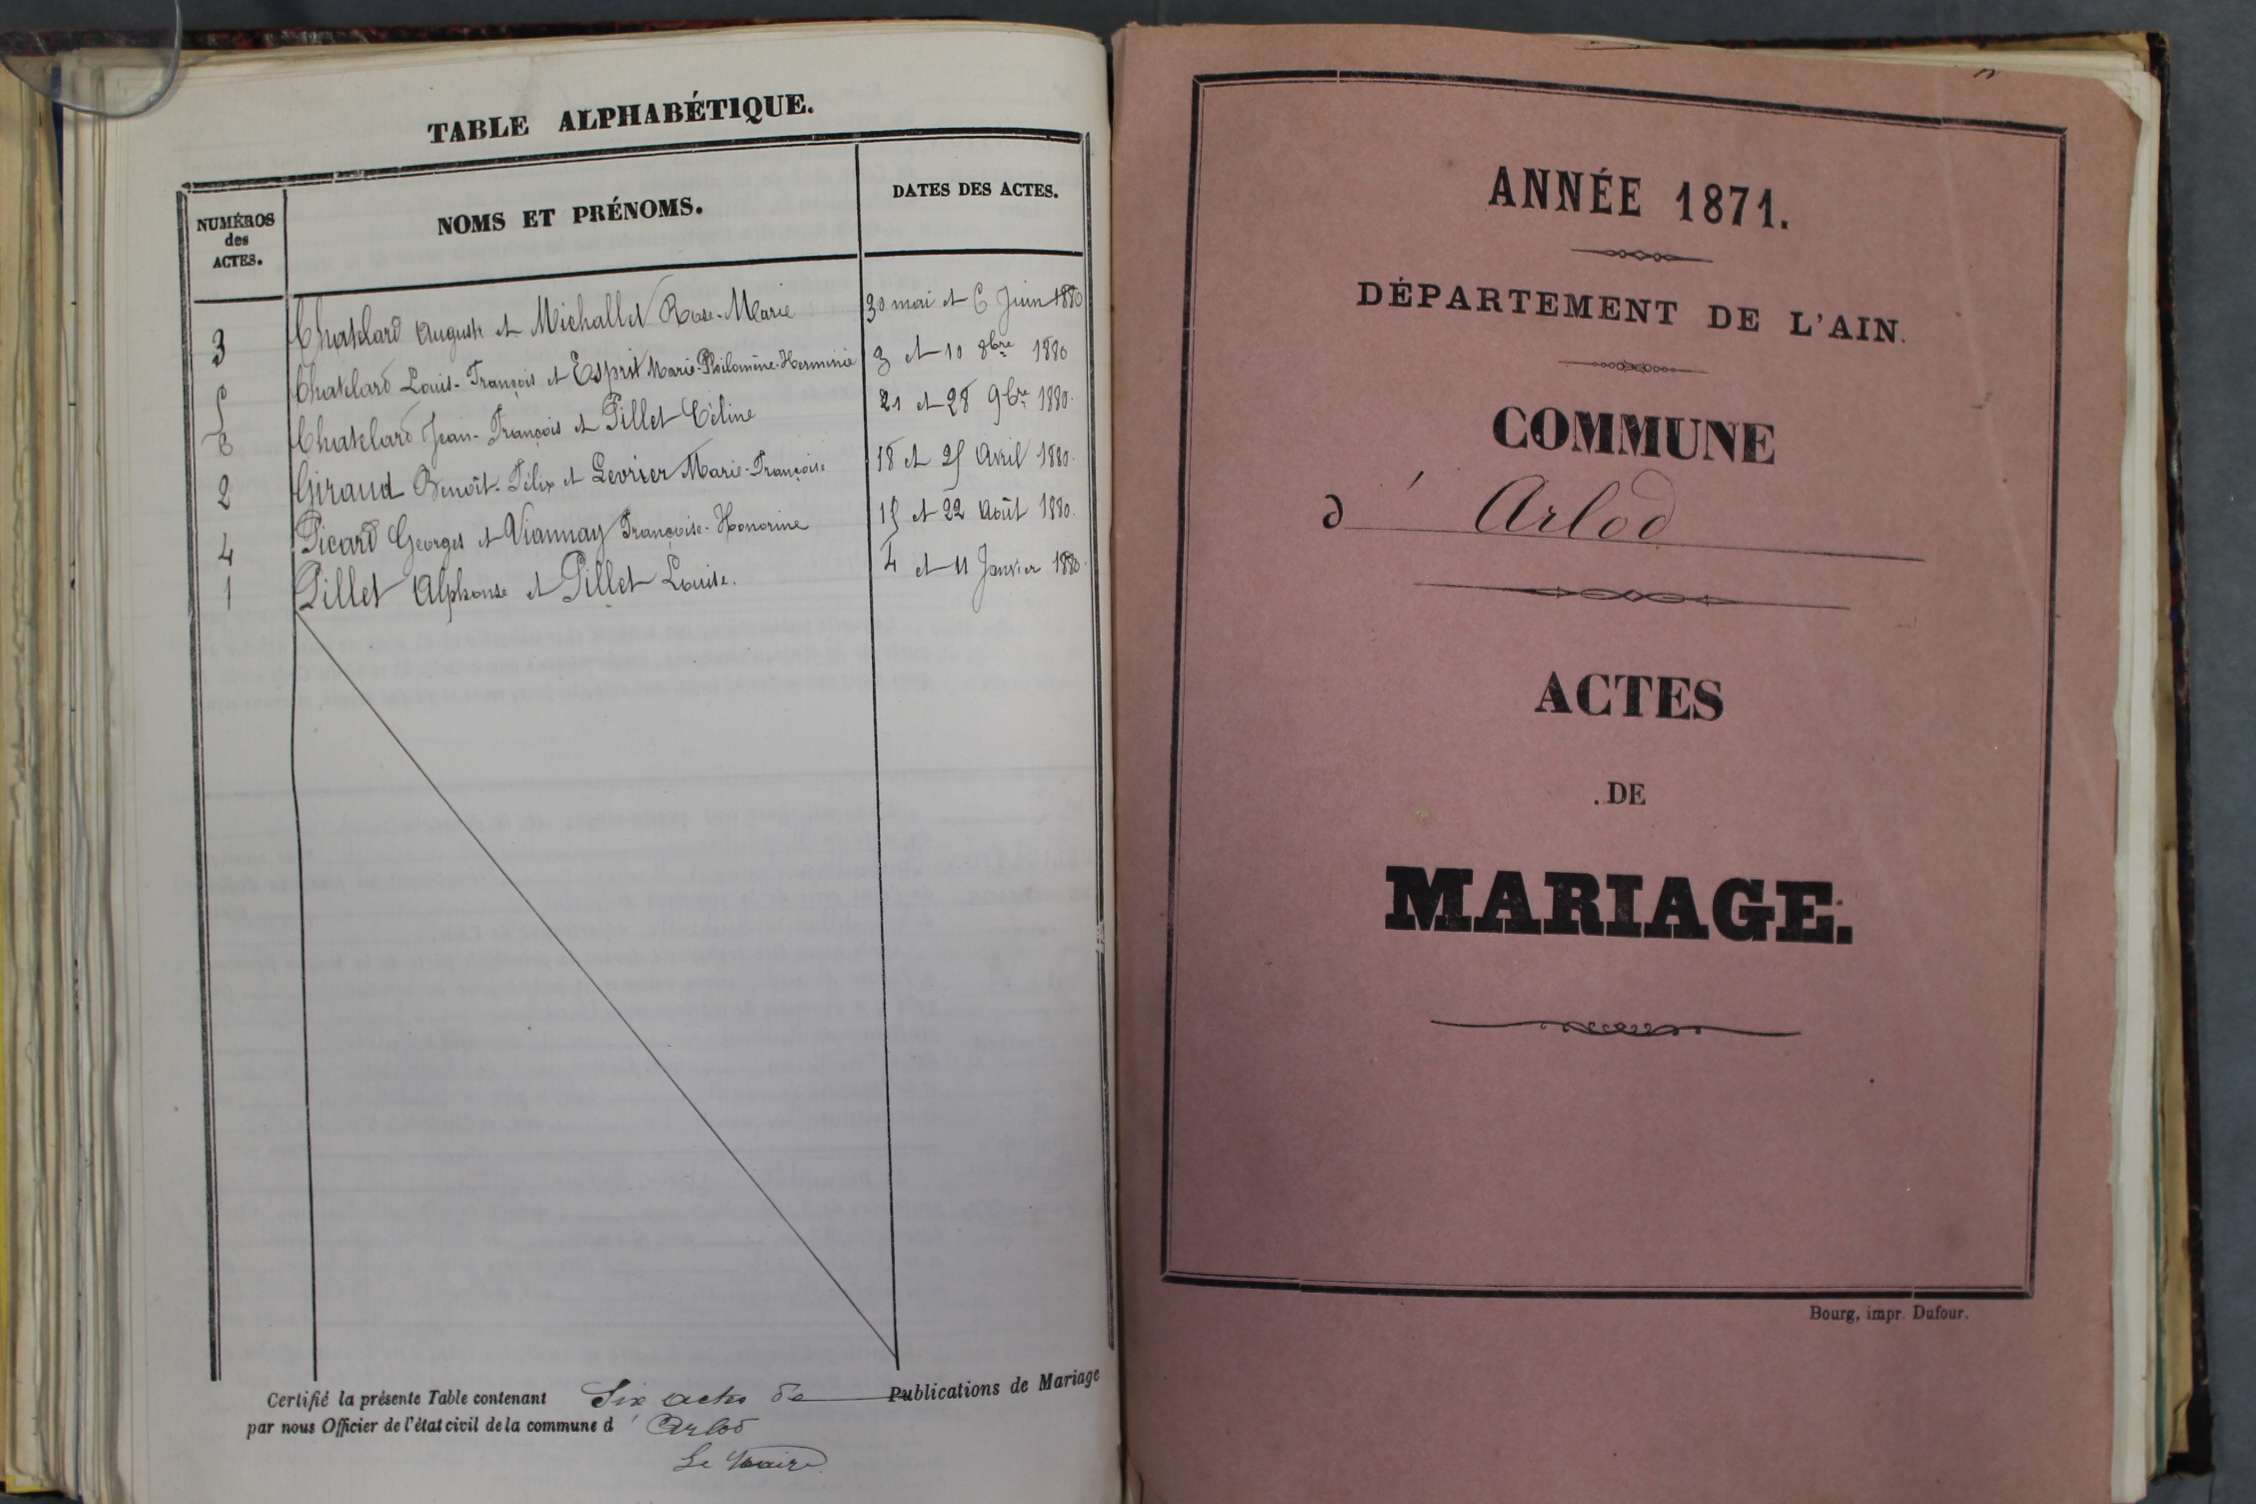 TABLE ALPHABÉTIQUE.
NUMÉROS
des
ACTES.
NOMS ET PRÉNOMS.
DATES DES ACTES.
3 Chatelard Auguste et Michallet Rose-Marie 30 mai et 6 Juin 1880
5 Chatelard Louis-François et Esprit Marie-Philomène-Herminie 3 et 10 8bre 1880
6 Chatelard Jean-François et Pillet Céline 21 et 28 9bre 1880.
2 Giraud Benoît-Félix et Levrier Marie-Françoise 18 et 25 Avril 1880.
4 Picard Georges et Viannay Françoise-Honorine 15 et 22 Août 1880.
1 Pillet Alphonse et Pillet Louise. 4 et 11 Janvier 1880.
Certifié la présente Table contenant Six actes de Publications de Mariage
par nous Officier de l'état civil de la commune d' Arlod
Le Maire
ANNÉE 1871.
DÉPARTEMENT DE L'AIN.
COMMUNE
d' Arlod
ACTES
DE
MARIAGE.
Bourg, impr. Dufour.